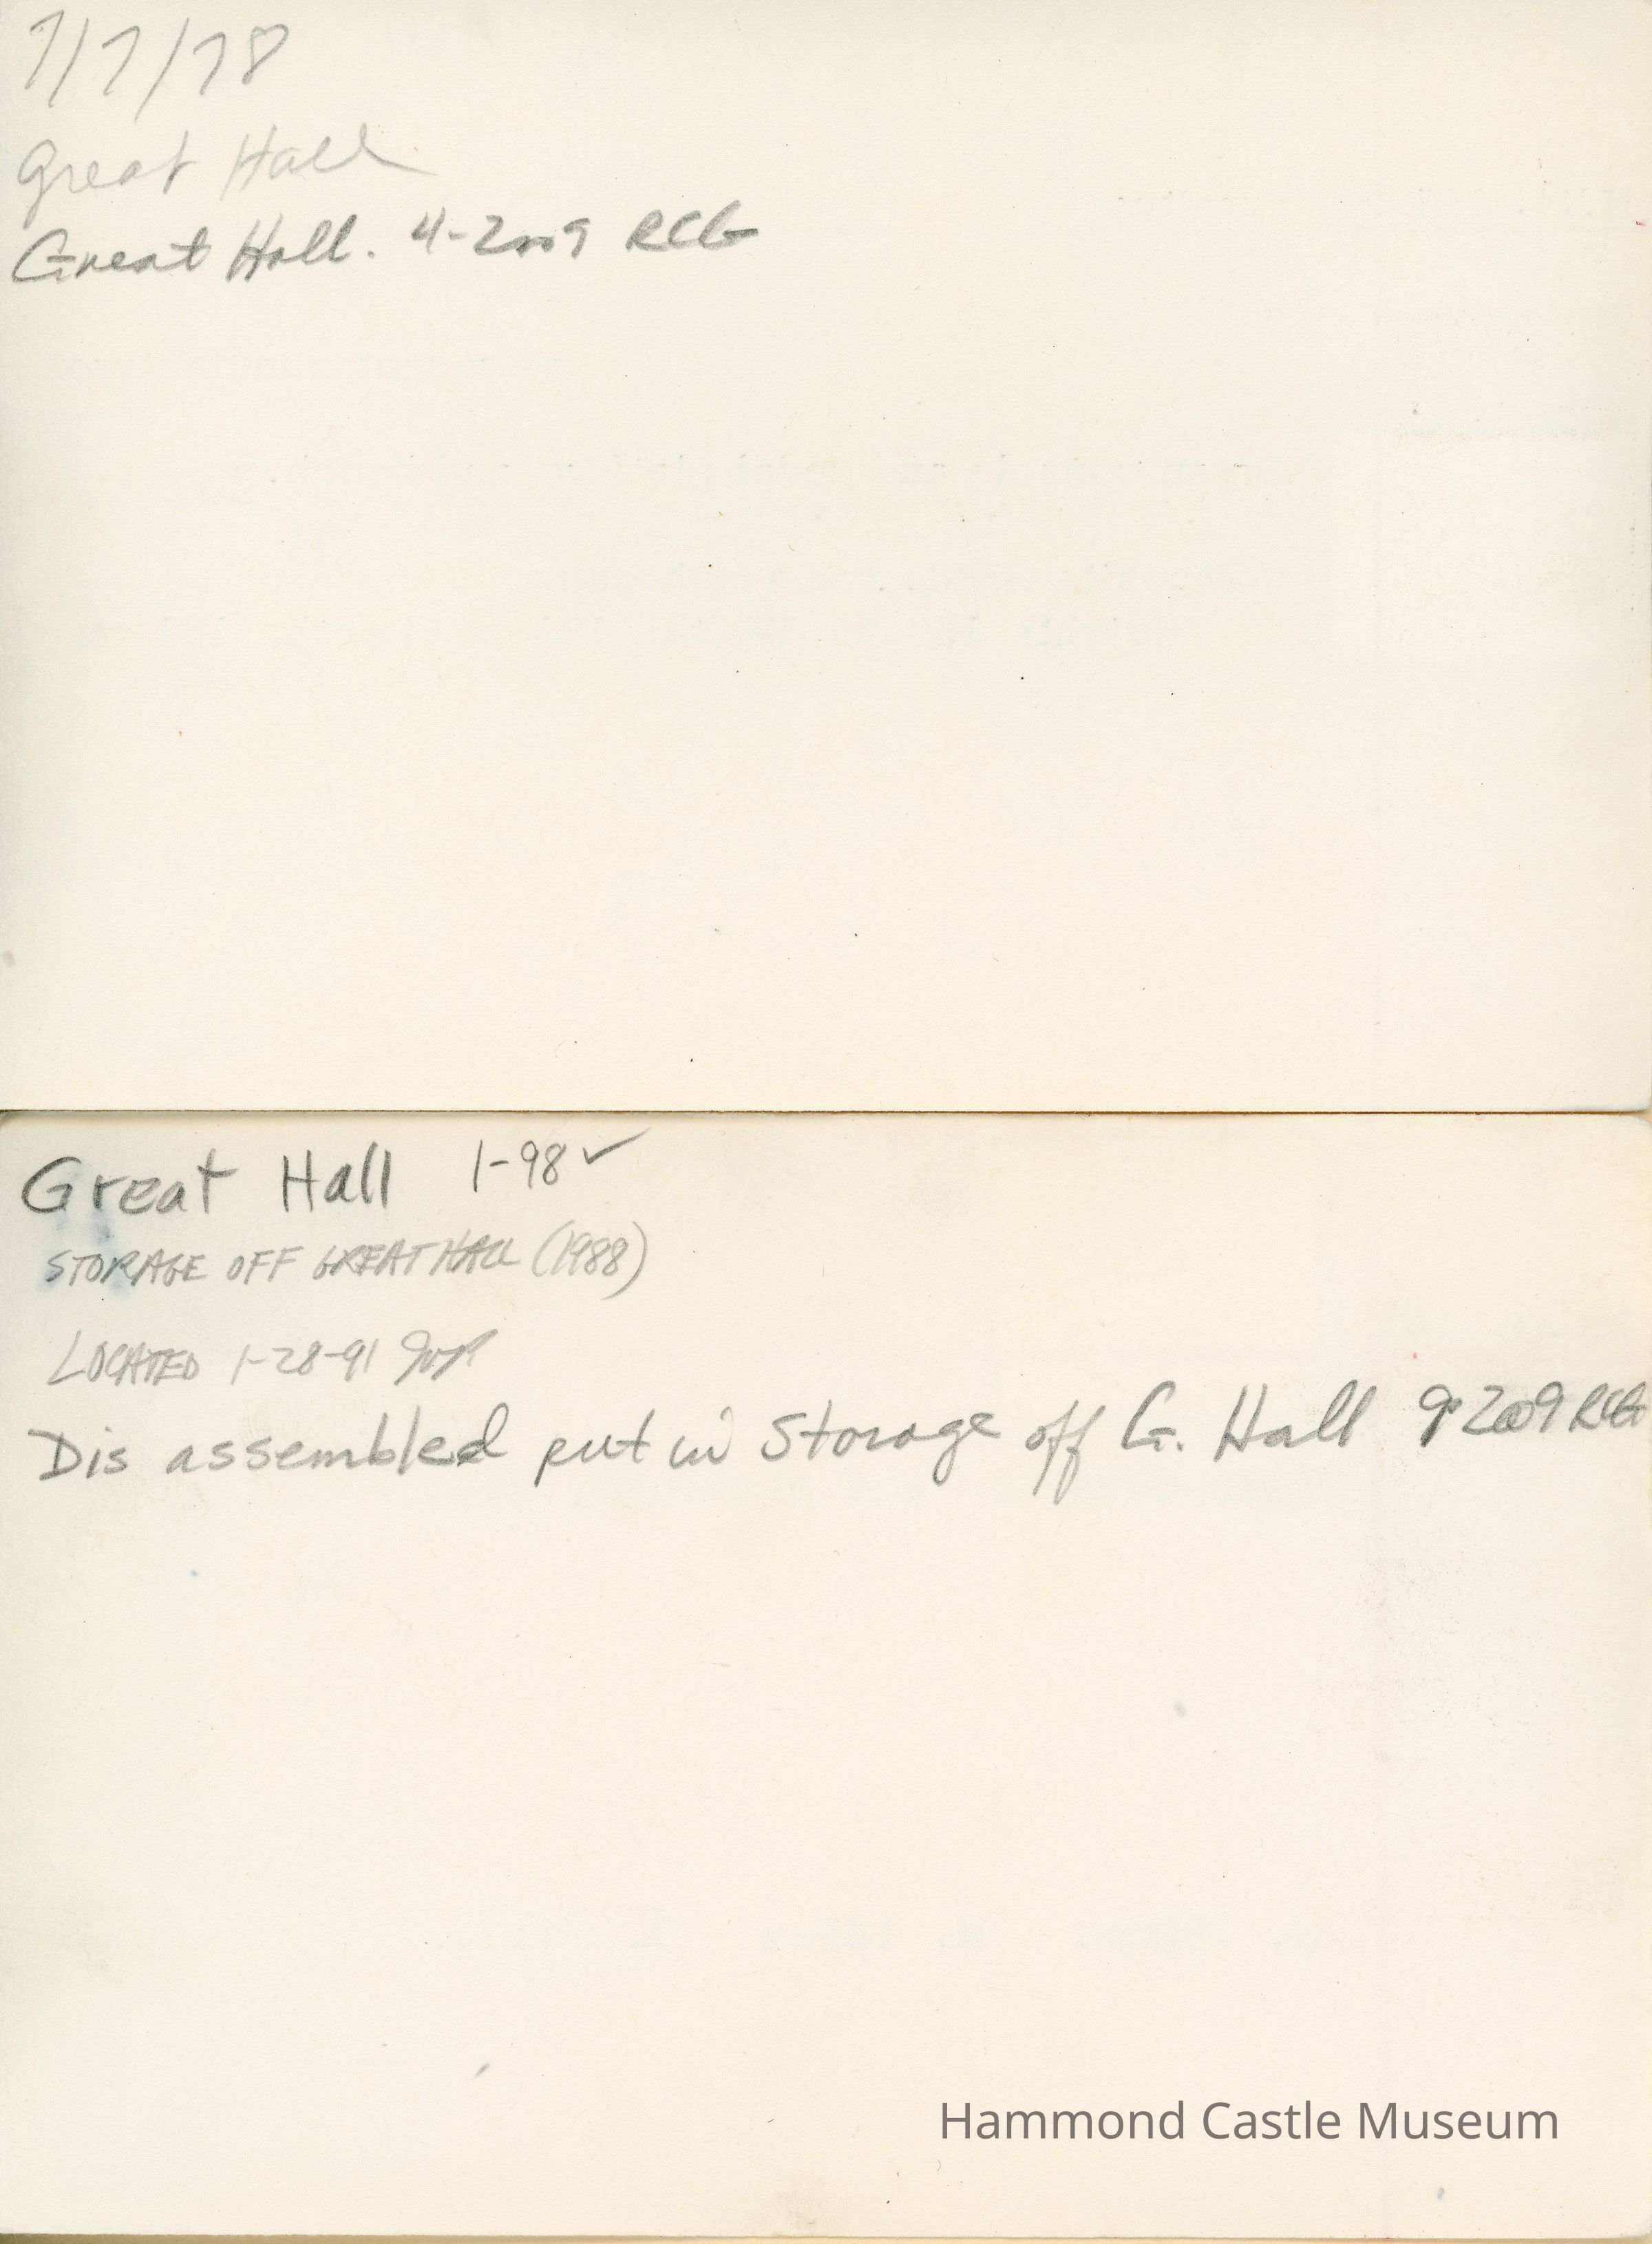 7/7/78
Great Hall
Great Hall. 4-2009 RCG
Great Hall 1-98 ✓
STORAGE OFF GREAT HALL (1988)
LOCATED 1-28-91
Dis assembled put in Storage off G. Hall 9-2009 RCG
Hammond Castle Museum